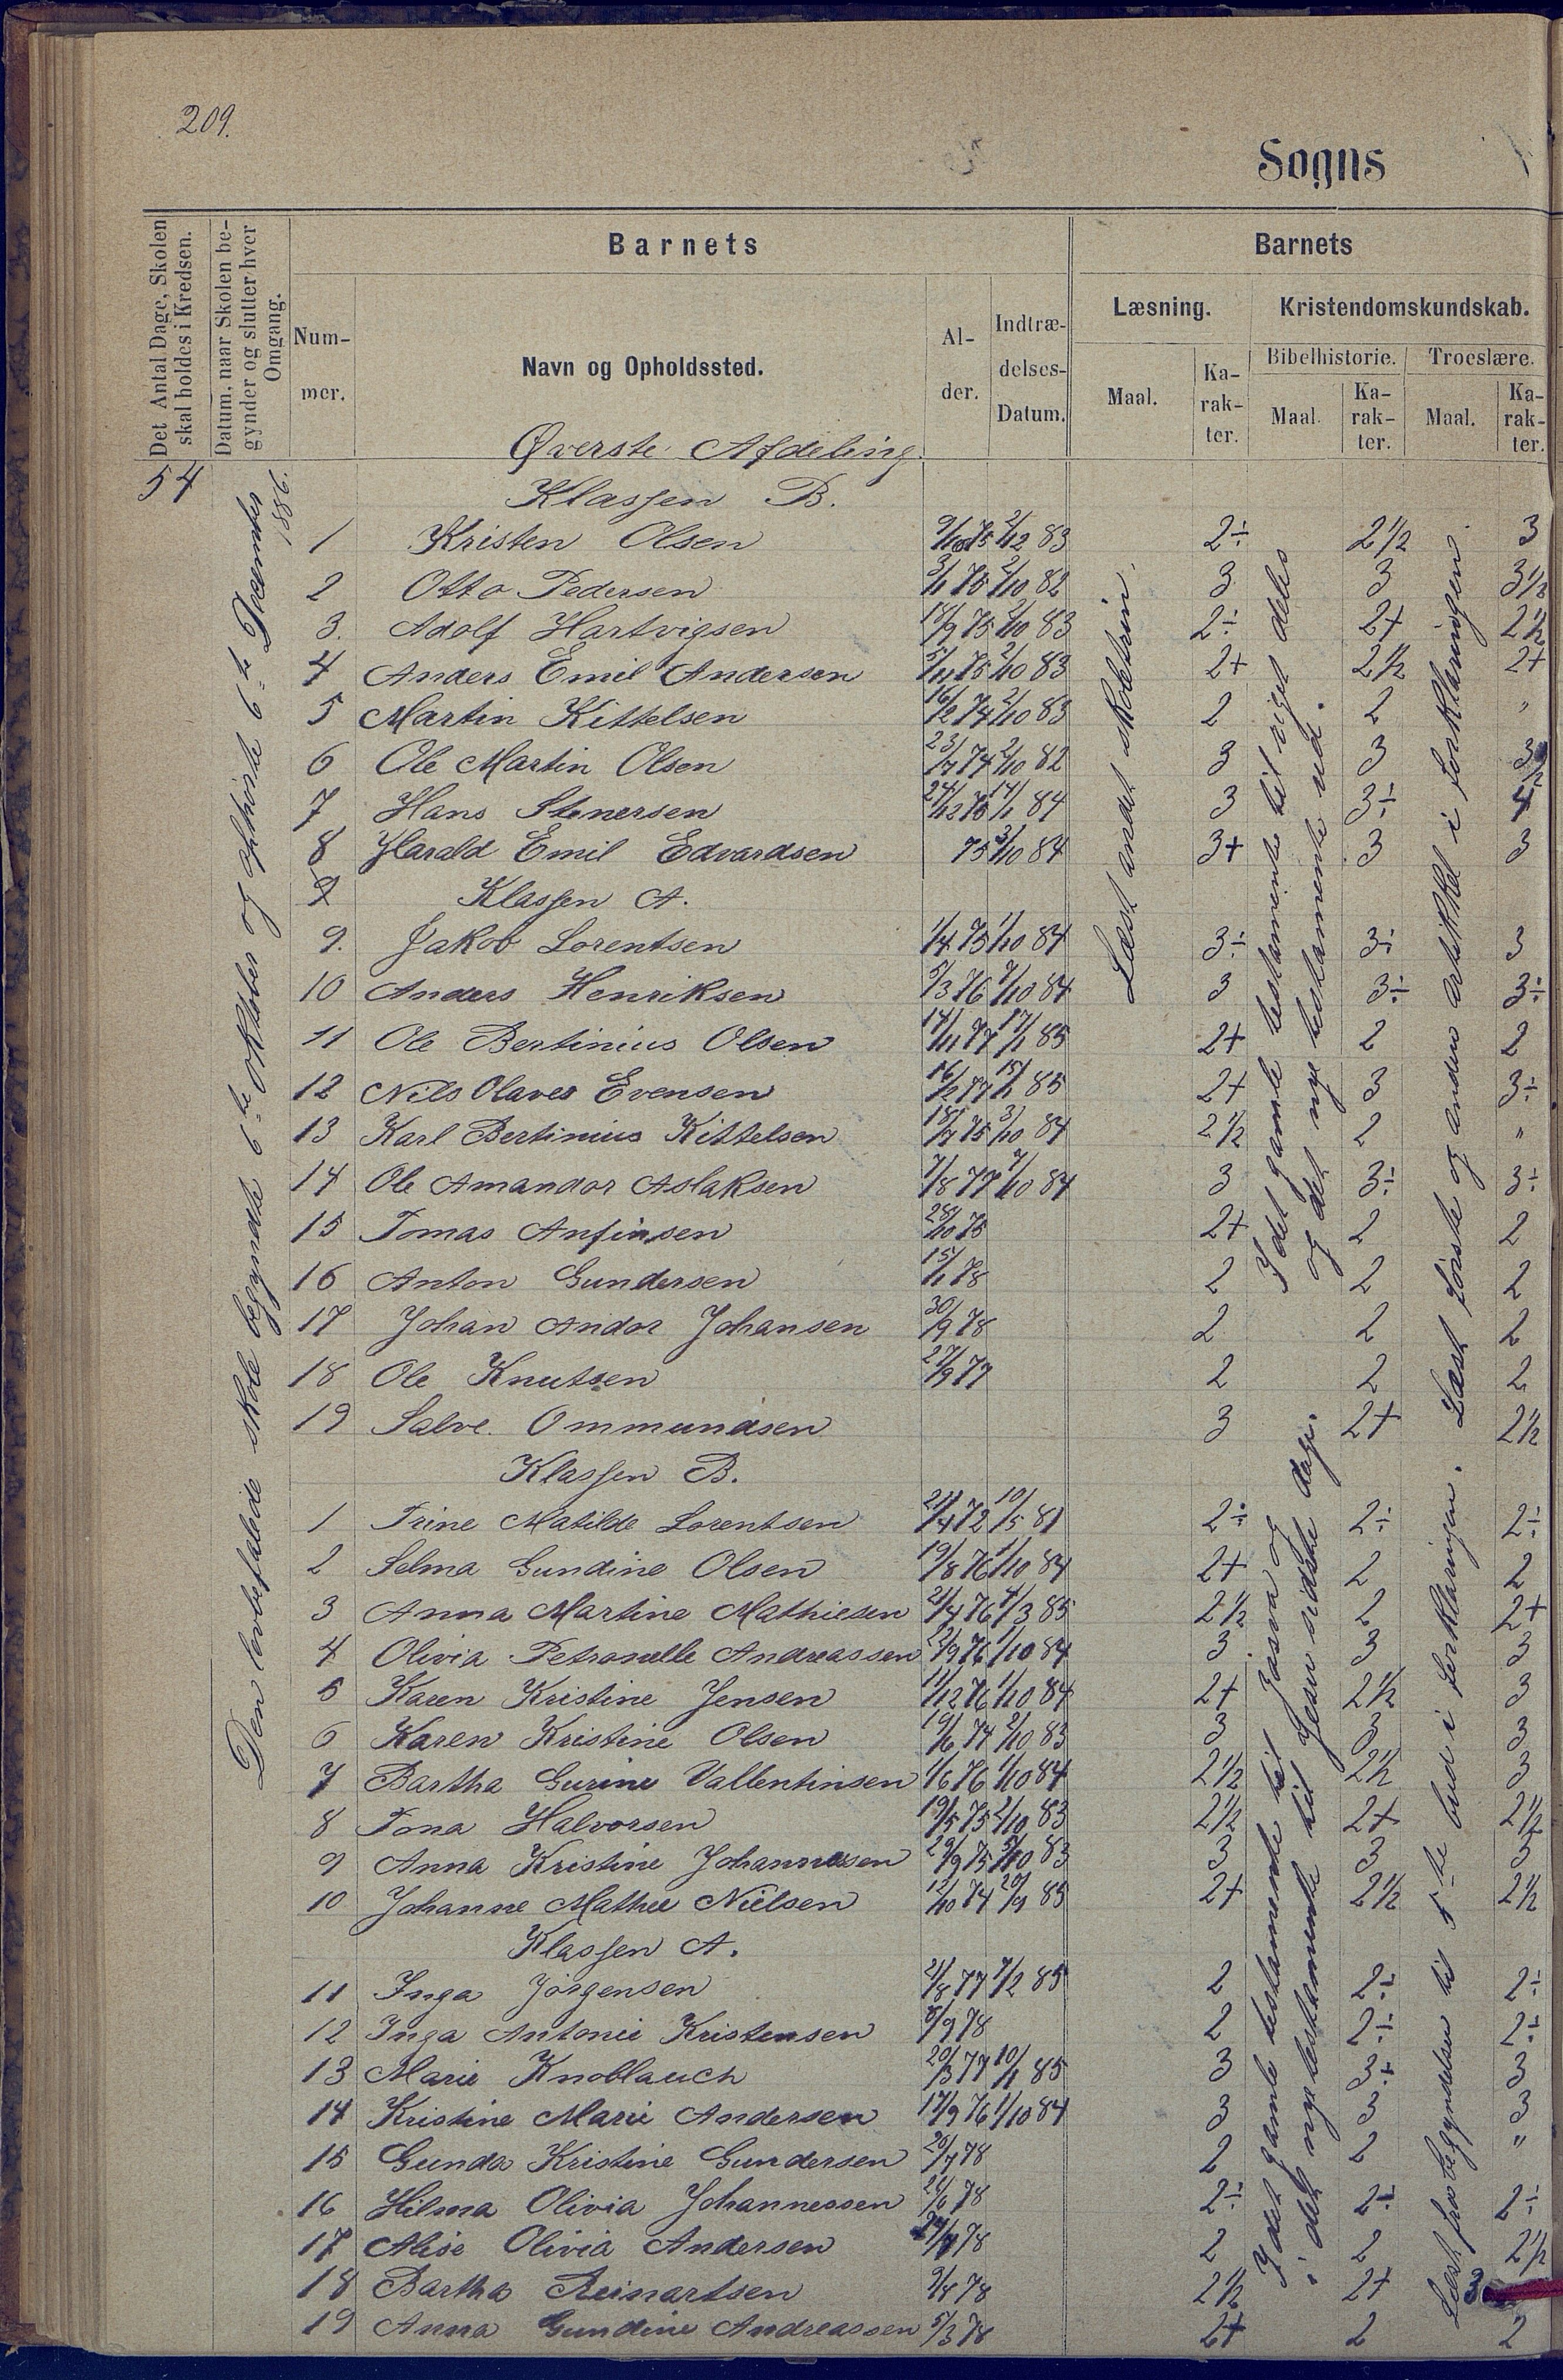 209.
Sogns
Det Antal Dage, Skolen skal holdes i Kredsen.
Datum, naar Skolen be-gynder og slutter hver Omgang.
Barnets
Barnets
Num-mer.
Navn og Opholdssted.
Al-der.
Indtræ-delses-Datum.
Læsning.
Kristendomskundskab.
Bibelhistorie.
Troeslære.
Maal.
Ka-rak-ter.
Maal.
Ka-rak-ter.
Maal.
Ka-rak-ter.
Øverste Afdeling
54
Klassen B.
1 Kristen Olsen 9/10 75 2/12 83 2÷ 2½ 3
2 Otto Pedersen 3/1 75 2/10 82 3 3 3½
3. Adolf Hartvigsen 18/9 75 2/10 83 2÷ 2+ 2½
4 Anders Emil Andersen 5/11 75 2/10 83 2+ 2½ 2+
5 Martin Kittelsen 16/12 74 2/10 83 2 2 "
6 Ole Martin Olsen 23/7 74 2/10 82 3 3 3½
7 Hans Stenersen 24/12 75 14/1 84 3 3÷ 4
8 Harald Emil Edvardsen 75 3/10 84 3+ 3 3
9 Klassen A.
9. Jakob Lorentsen 1/4 75 1/10 84 3÷ 3÷ 3
10 Anders Henriksen 5/3 76 7/10 84 3 3÷ 3÷
11 Ole Bertinius Olsen 14/11 77 17/1 85 2+ 2 2
12 Nils Olaves Evensen 16/2 77 15/1 85 2+ 3 3÷
13 Karl Bertinius Kittelsen 18/7 75 3/10 84 2½ 2 "
14 Ole Amandor Aslaksen 7/8 77 7/10 84 3 3÷ 3÷
15 Tomas Anfinsen 28/10 75 2+ 2 2
16 Anton Gundersen 15/1 78 2 2 2
17 Johan Andor Johansen 30/9 78 2 2 2
18 Ole Knutsen 27/9 77 2 2 2
19 Salve Ommundsen 3 2+ 2½
Klassen B.
1 Trine Matilde Lorentsen 21/4 72 10/5 81 2÷ 2÷ 2÷
2 Selma Gundine Olsen 19/8 76 1/10 84 2+ 2 2
3 Anna Martine Mathiesen 21/4 76 4/3 85 2½ 2 2+
4 Olivia Petronelle Andreassen 22/9 76 1/10 84 3 3 3
5 Karen Kristine Jensen 11/12 76 1/10 84 2+ 2½ 3
6 Karen Kristine Olsen 19/6 74 2/10 83 3 3 3
7 Bartha Gurine Vallentinsen 1/6 76 1/10 84 2½ 2½ 3
8 Tona Halvorsen 19/5 75 2/10 83 2½ 2+ 2½
9 Anna Kristine Johannesen 29/9 75 5/10 83 3 3 3
10 Johanne Mathee Nielsen 12/10 74 20/9 83 2+ 2½ 2½
Klassen A.
11 Inga Jørgensen 21/8 77 7/2 85 2 2÷ 2÷
12 Inga Antonie Kristensen 8/9 78 2 2÷ 2÷
13 Marie Knoblauch 20/3 77 10/1 85 3 3÷ 3
14 Kristine Marie Andersen 17/9 76 1/10 84 3 3 3
15 Gunda Kristine Gundersen 20/7 78 2 2 "
16 Hilma Olivia Johannessen 24/6 78 2÷ 2÷ 2÷
17 Alise Olivia Andersen 78 2 2 2½
18 Bartha Reinartsen 9/8 78 2½ 2+ 3
19 Anna Gundine Andreassen 5/3 78 2+ 2 2
Den lovbefalede skole begyndte 6-te oktober og ophørte 6-te December 1886.
Læst andet skoletrin.
I det gamle testamente til riget deles
og det nye testamente ud.
Læst første og anden artikkel i forklaringen.
I det gamle testamente til Josva og
i det nye testamente til Jesu sidste dage.
Læst fra begyndelsen til 5-te bud i forklaringen.